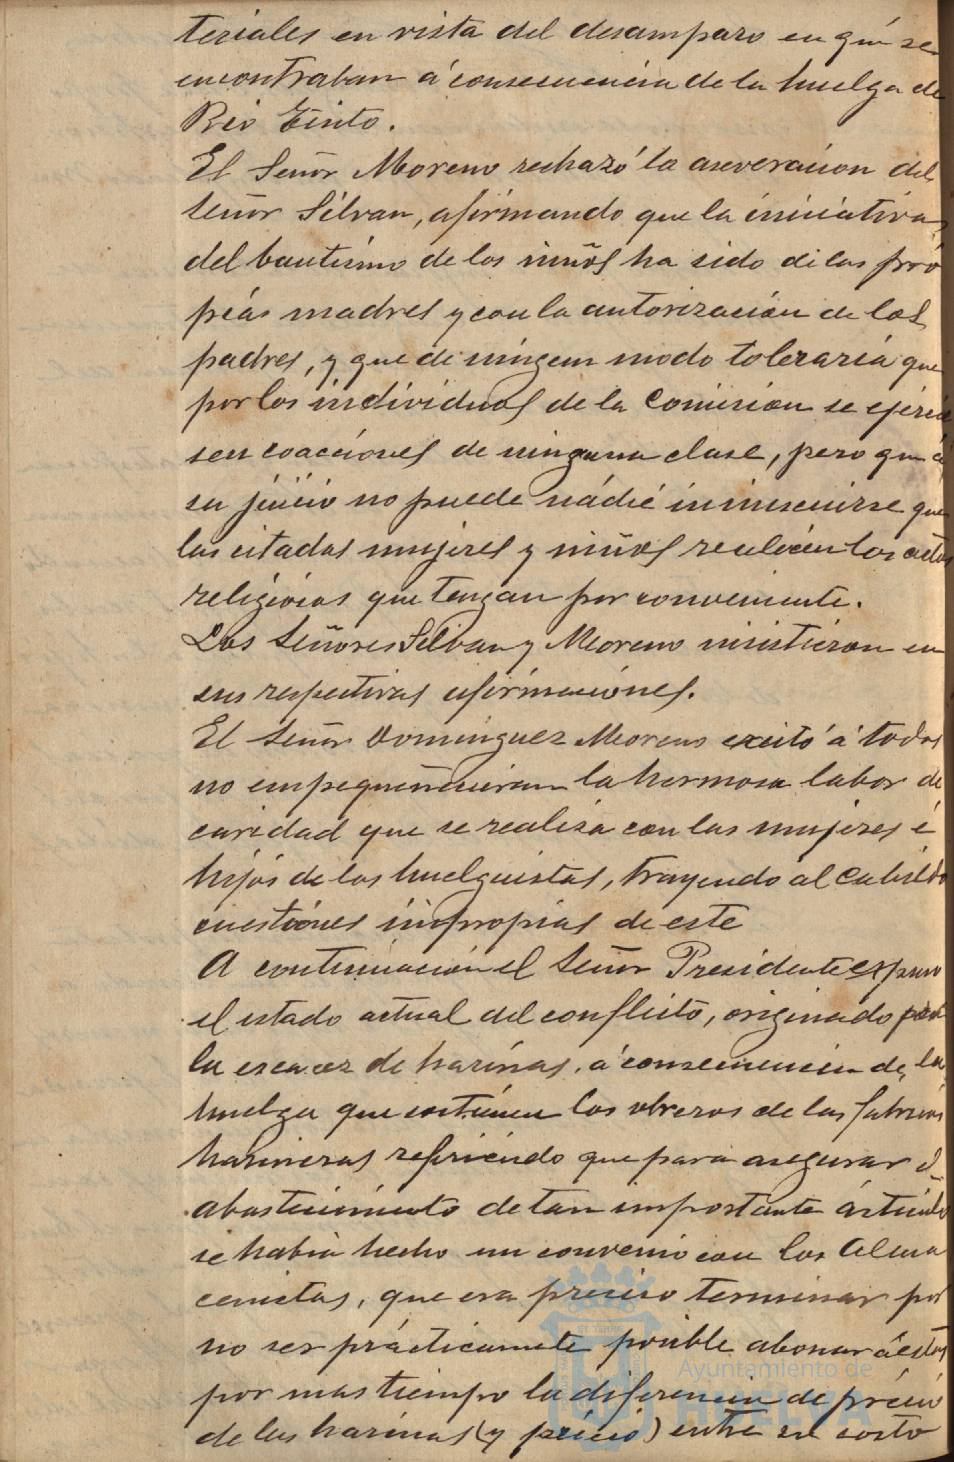 teriales en vista del desamparo en que se
encontraban á consecuencia de la huelga de
Rio Tinto.
El Señor Moreno rechazó la aseveracion del
Señor Silvan, afirmando que la iniciativa
del bautismo de los niños ha sido de las pró
pias madres y con la autorización de los
padres, y que de ningun modo toleraria que
por los individuos de la Comision se ejercie
sen coacciones de ninguna clase, pero que á
su juicio no puede nádie inmiscuirse que
las citadas mujeres y niños realicen los actos
religiosos que tengan por conveniente.
Los Señores Silvan y Moreno insistieron en
sus respectivas afirmaciones.
El Señor Dominguez Moreno excitó á todos
no empequeñecieran la hermosa labor de
caridad que se realiza con las mujeres é
hijos de los huelguistas, trayendo al Cabildo
cuestiones impropias de este
A continuación el Señor Presidente expuso
el estado actual del conflicto, originado por
la escacez de harinas, á consecuencia de la
huelga que sostienen los obreros de las fabricas
harineras refiriendo que para asegurar el
abastecimiento de tan importante árticulo
se habia hecho un convenio con los Alma
cenistas, que era preciso terminar por
no ser prácticamente posible abonar á estos
por mas tiempo la diferencia de précio
de las harinas (y précio) entre su costo
Ayuntamiento de
HUELVA